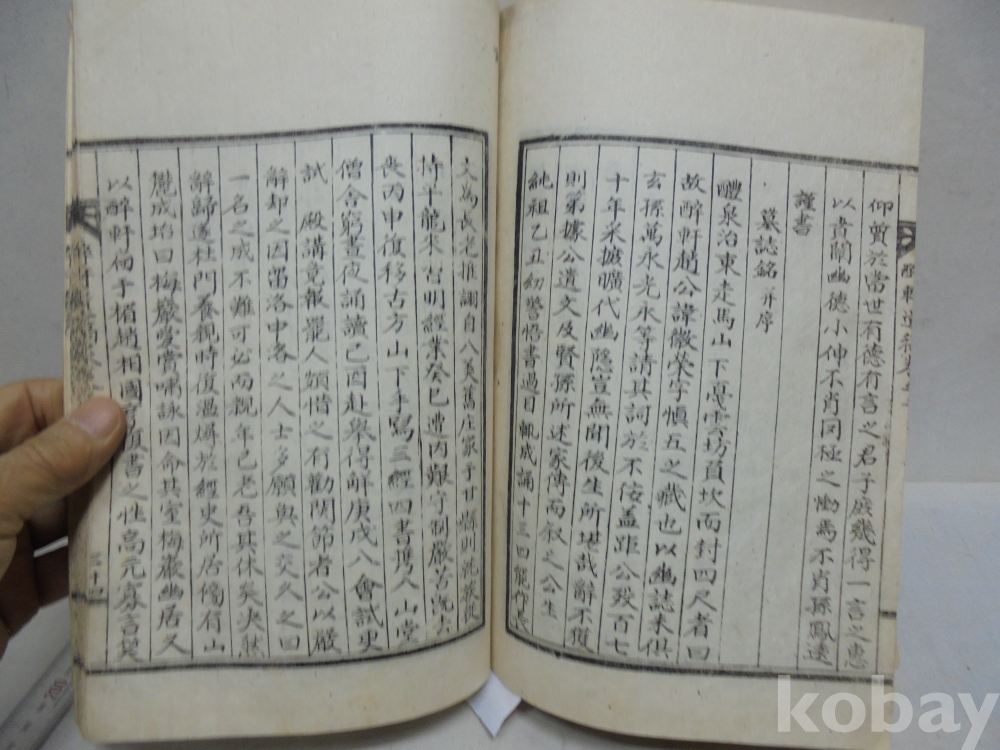 仰質於當世有德有言之君子庶幾得一言之惠
以耆闡幽德小伸不肖罔極之慟焉不肖孫鳳逵
謹書
墓誌銘 并序
醴泉治東走馬山下亳雲坊負坎而封四尺者曰
故醉軒趙公諱徽榮字愼五之藏也以幽誌来供
玄孫萬永光永等請其詞於不佞盖距公歿百七
十年米摭曠代幽隱豈無聞後生所堪哉辭不獲
則第據公遺文及賢孫所述家傳而叙之公生
純祖乙丑幼警悟書過目輒成誦十三四能作長
文為長老推詡自八
持平龍来吉明經業癸巳遭内艱守制嚴苦
喪丙申復移古方山下手寫三經四書携入山堂
僧舍窮晝夜誦讀己酉赴擧得解庚戌入會試吏
試 殿講竟報罷人頗惜之有勸関節者公以嚴
解却之因留洛中洛之人士多願與之交久之曰
一名之成不難可必而親年已老吾其休矣决然
辭歸遂杜門養親時復溫燖於經史所居傍有山
嵬成坮曰梅巖爱賞嘯詠因命其室梅巖幽居又
以醉軒
趙相國
書之性高元寡言笑
二十四
kobay